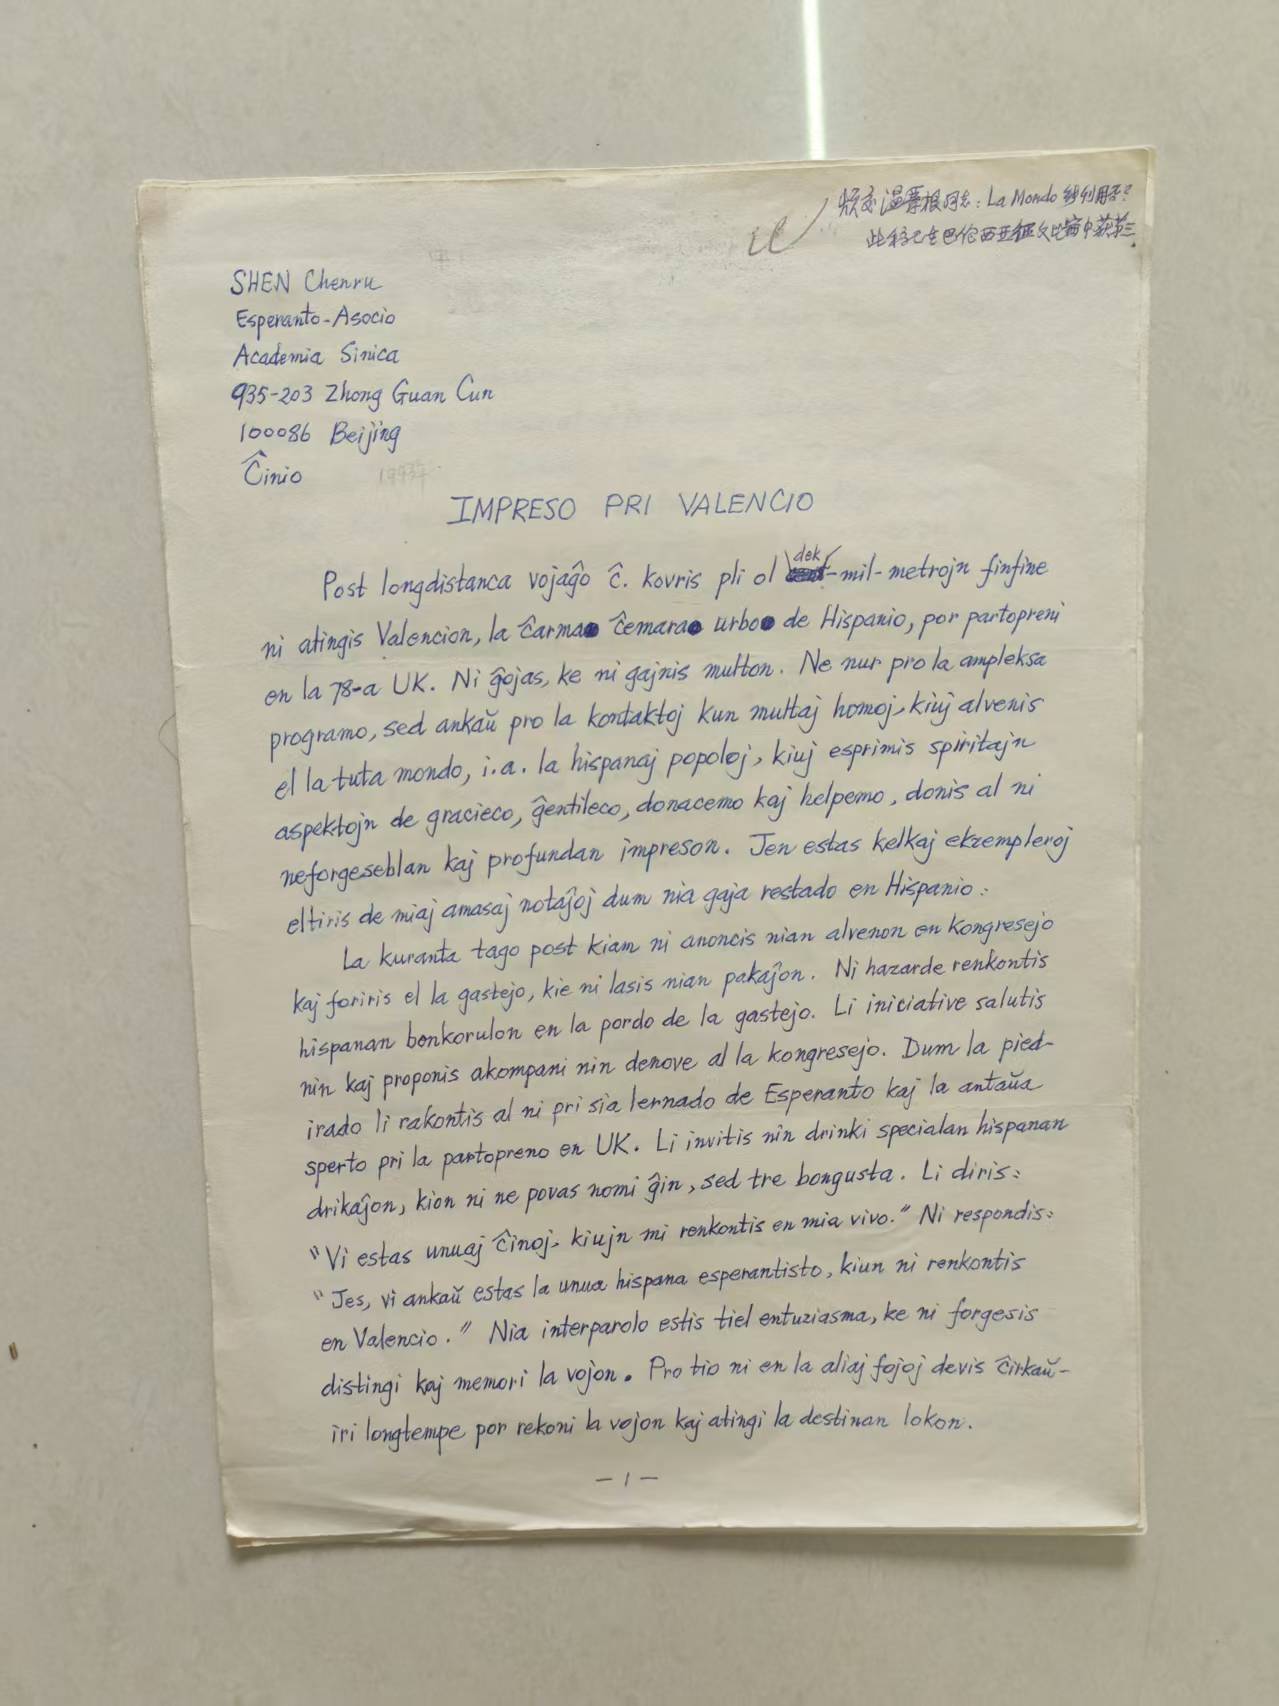 烦交温晋根同志: La Mondo 能利用否?
此稿已在巴伦西亚征文比赛中获第三.
SHEN Chenru
Esperanto-Asocio
Academia Sinica
935-203 Zhong Guan Cun
100086 Beijing
Ĉinio
IMPRESO PRI VALENCIO
Post longdistanca vojaĝo ĉ. kovris pli ol dek-mil-metrojn finfine
ni atingis Valencion, la ĉarma ĉemara urbo de Hispanio, por partopreni
en la 78-a UK. Ni ĝojas, ke ni gajnis multon. Ne nur pro la ampleksa
programo, sed ankaŭ pro la kontaktoj kun multaj homoj, kiuj alvenis
el la tuta mondo, i.a. la hispanaj popoloj, kiuj esprimis spiritajn
aspektojn de gracieco, ĝentileco, donacemo kaj helpemo, donis al ni
neforgeseblan kaj profundan impreson. Jen estas kelkaj ekzempleroj
eltiris de miaj amasaj notaĵoj dum nia gaja restado en Hispanio:
La kuranta tago post kiam ni anoncis nian alvenon en kongresejo
kaj foriris el la gastejo, kie ni lasis nian pakaĵon. Ni hazarde renkontis
hispanan bonkorulon en la pordo de la gastejo. Li iniciative salutis
nin kaj proponis akompani nin denove al la kongresejo. Dum la pied-
irado li rakontis al ni pri sia lernado de Esperanto kaj la antaŭa
sperto pri la partopreno en UK. Li invitis nin drinki specialan hispanan
drikaĵon, kion ni ne povas nomi ĝin, sed tre bongusta. Li diris:
"Vi estas unuaj ĉinoj, kiujn mi renkontis en mia vivo." Ni respondis:
"Jes, vi ankaŭ estas la unua hispana esperantisto, kiun ni renkontis
en Valencio." Nia interparolo estis tiel entuziasma, ke ni forgesis
distingi kaj memori la vojon. Pro tio ni en la aliaj fojoj devis ĉirkaŭ-
iri longtempe por rekoni la vojon kaj atingi la destinan lokon.
— 1 —